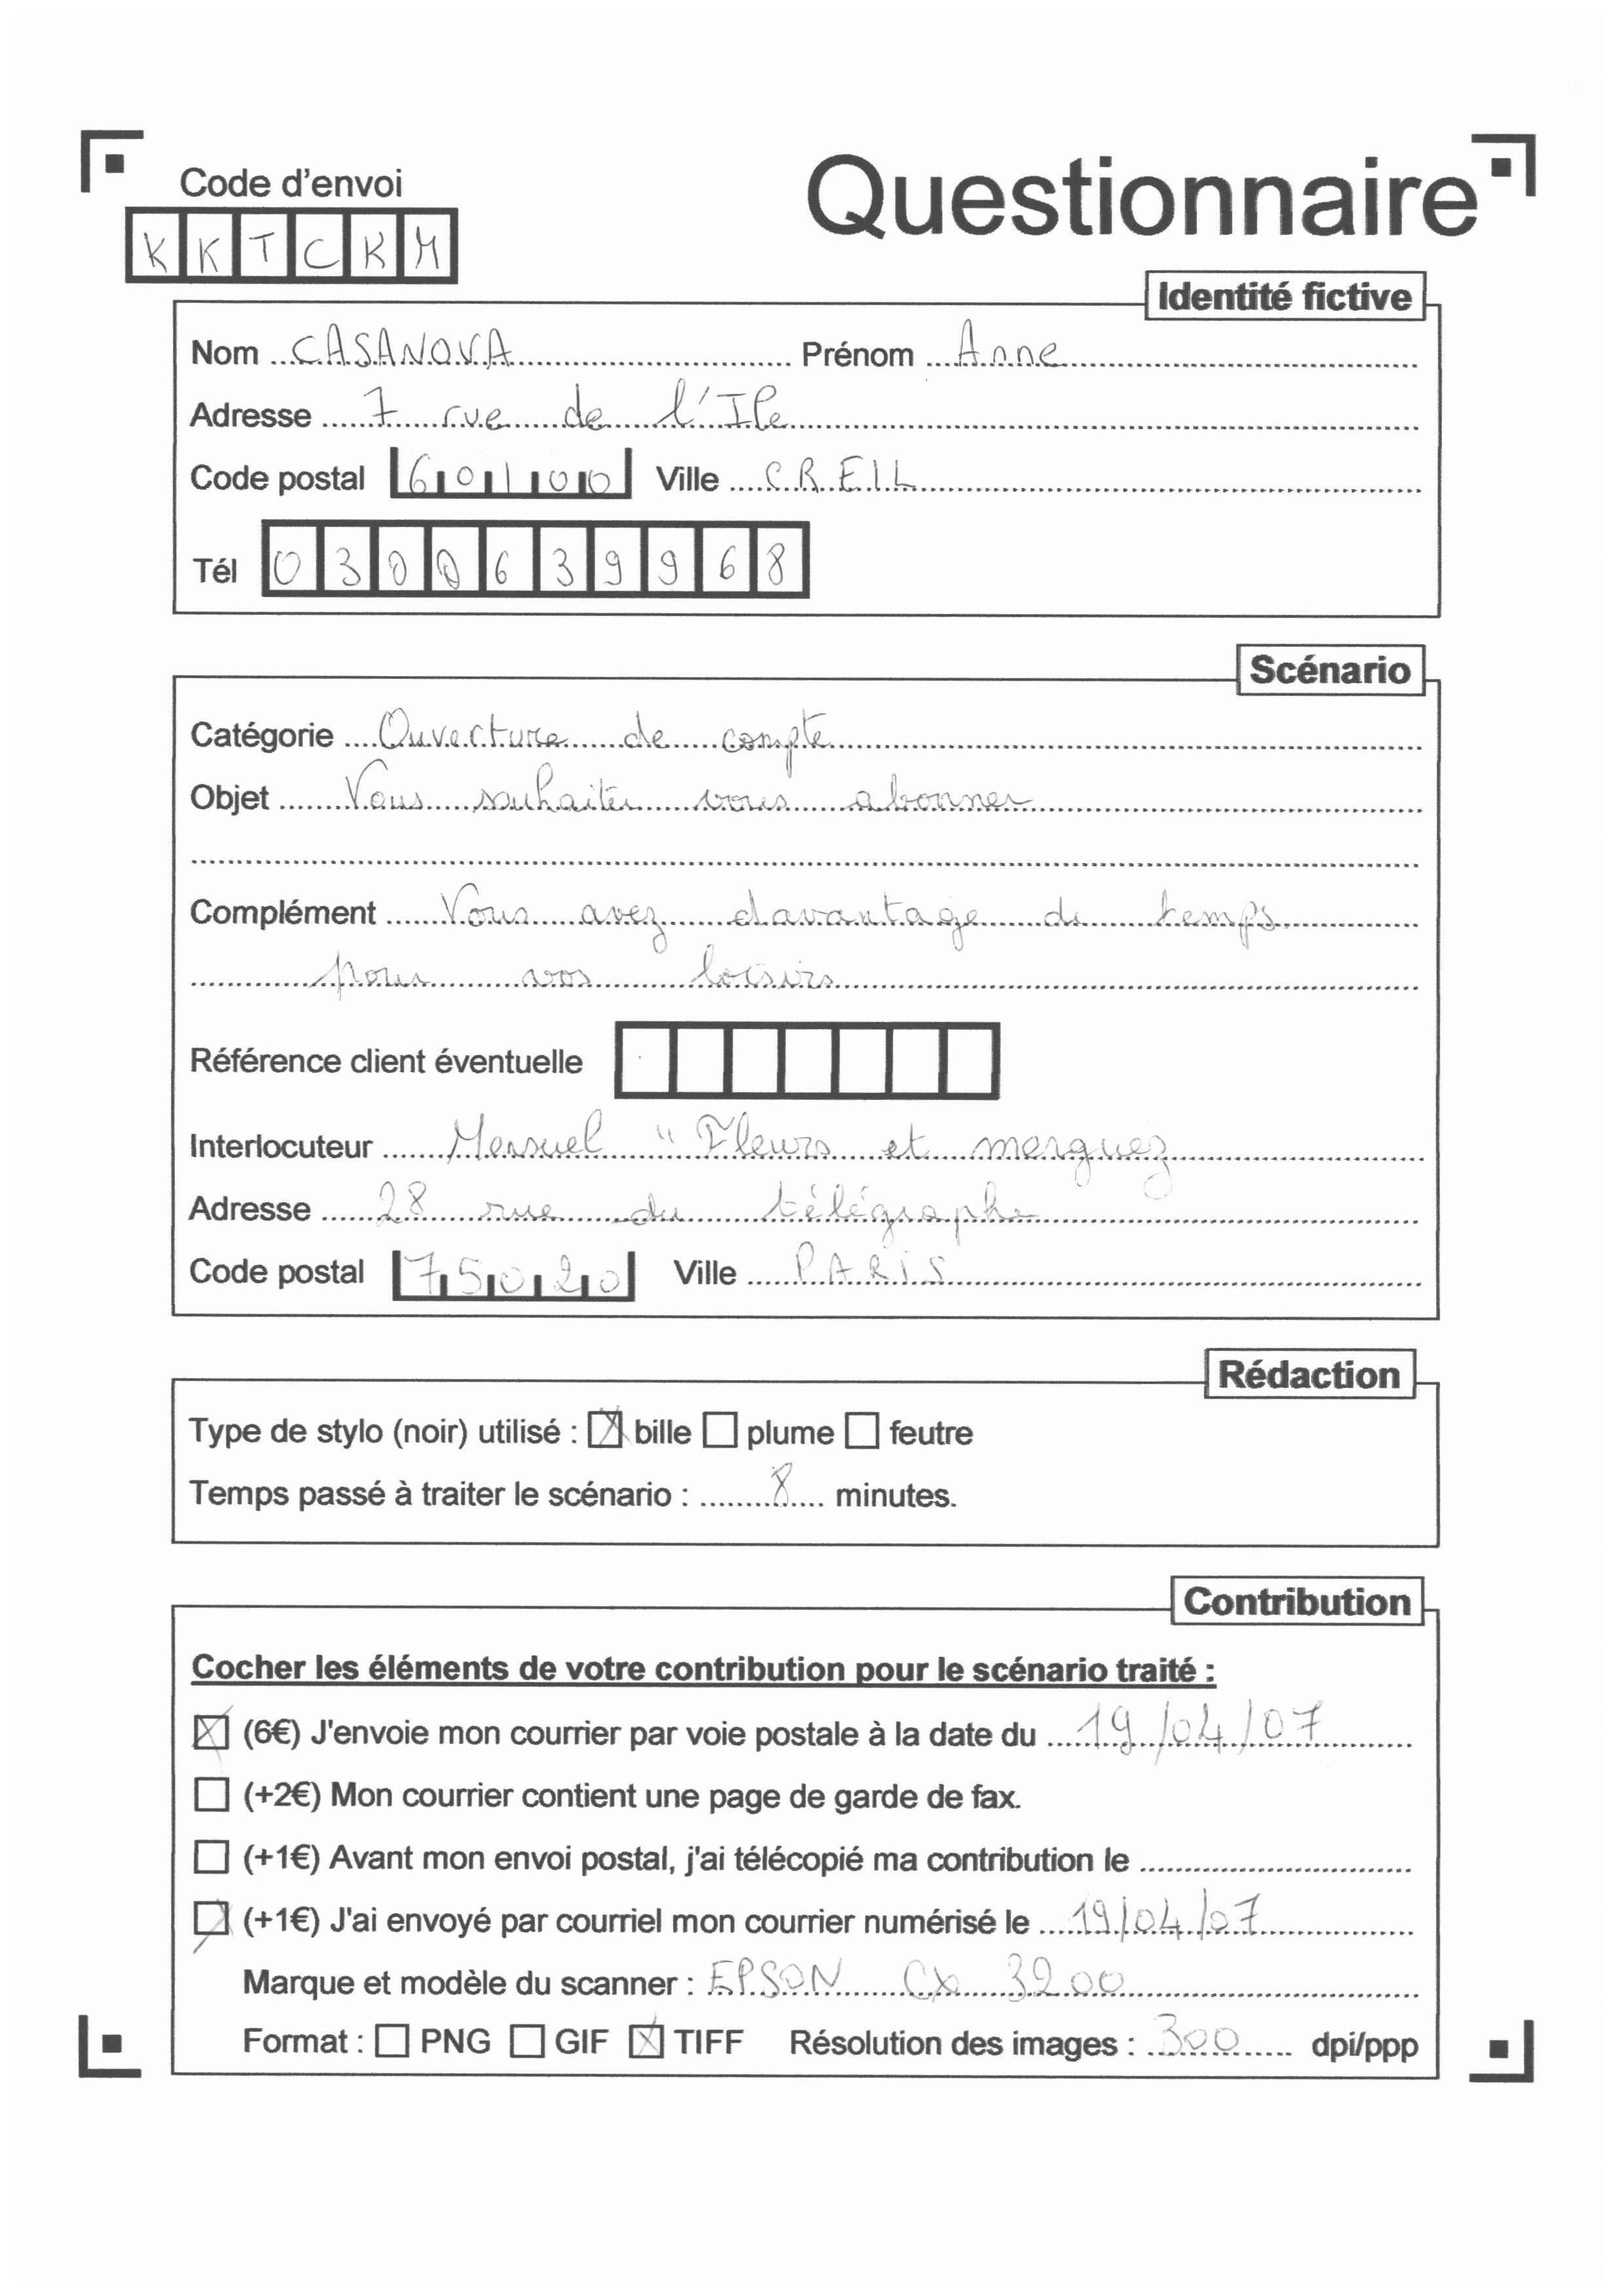 Code d'envoi
Questionnaire
K K T C K M
Identité fictive
Nom CASANOVA Prénom Anne
Adresse 7 rue de l'Ile
Code postal 60100 Ville CREIL
Tél 0300639968
Scénario
Catégorie Ouverture de compte
Objet Vous souhaitez vous abonner
Complément Vous avez davantage de temps
pour vos loisirs
Référence client éventuelle
Interlocuteur Mensuel " Fleurs et merguez
Adresse 28 rue du télégraphe
Code postal 75020 Ville PARIS
Rédaction
Type de stylo (noir) utilisé : ☒ bille ☐ plume ☐ feutre
Temps passé à traiter le scénario : 8 minutes.
Contribution
Cocher les éléments de votre contribution pour le scénario traité :
☒ (6€) J'envoie mon courrier par voie postale à la date du 19/04/07
☐ (+2€) Mon courrier contient une page de garde de fax.
☐ (+1€) Avant mon envoi postal, j'ai télécopié ma contribution le
☒ (+1€) J'ai envoyé par courriel mon courrier numérisé le 19/04/07
Marque et modèle du scanner : EPSON CX 3200
Format : ☐ PNG ☐ GIF ☒ TIFF Résolution des images : 300 dpi/ppp